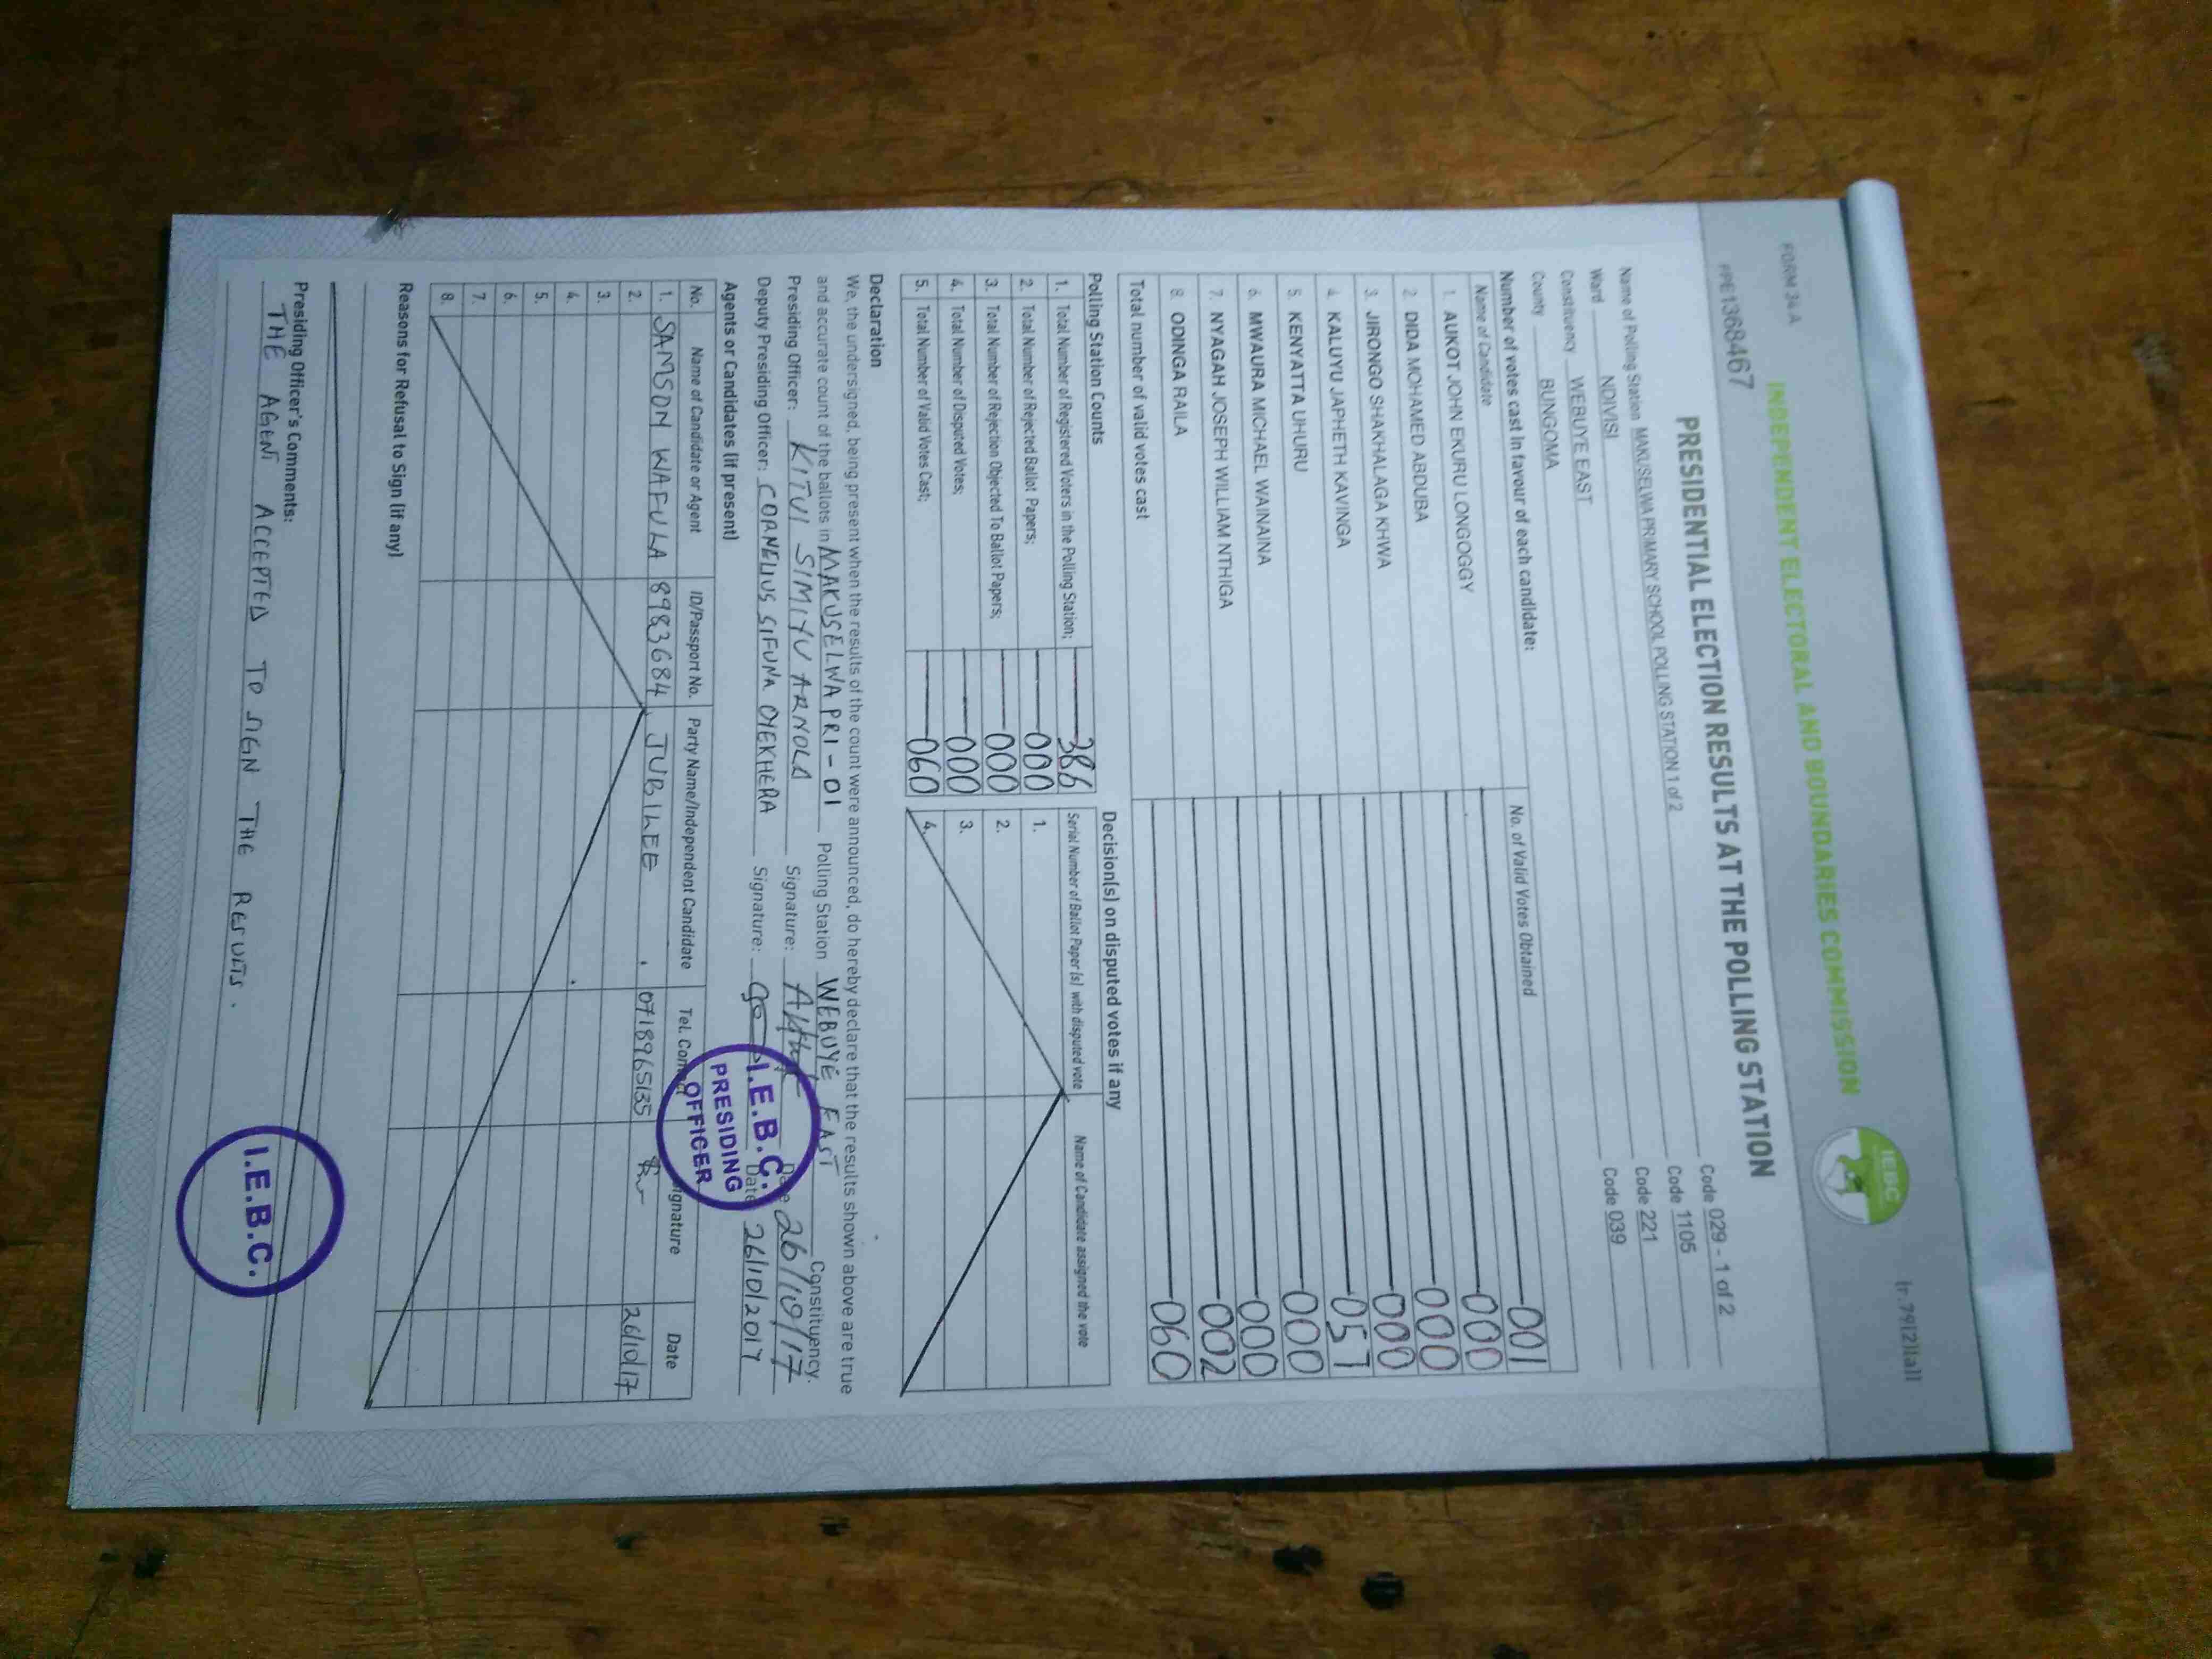 FORM 34A
(r.79(2)(a))
INDEPENDENT ELECTORAL AND BOUNDARIES COMMISSION
IEBC
PPE1368467
PRESIDENTIAL ELECTION RESULTS AT THE POLLING STATION
Name of Polling Station MAKUSELWA PRIMARY SCHOOL POLLING STATION 1 of 2 Code 029 - 1 of 2
Ward NDIVISI Code 1105
Constituency WEBUYE EAST Code 221
County BUNGOMA Code 039
Number of votes cast in favour of each candidate:
Name of Candidate No. of Valid Votes Obtained
1. AUKOT JOHN EKURU LONGOGGY 001
2. DIDA MOHAMED ABDUBA 000
3. JIRONGO SHAKHALAGA KHWA 000
4. KALUYU JAPHETH KAVINGA 000
5. KENYATTA UHURU 057
6. MWAURA MICHAEL WAINAINA 000
7. NYAGAH JOSEPH WILLIAM NTHIGA 000
8. ODINGA RAILA 002
Total number of valid votes cast 060
Polling Station Counts
1. Total Number of Registered Voters in the Polling Station; 386
2. Total Number of Rejected Ballot Papers; 000
3. Total Number of Rejection Objected To Ballot Papers; 000
4. Total Number of Disputed Votes; 000
5. Total Number of Valid Votes Cast; 060
Decision(s) on disputed votes if any
Serial Number of Ballot Paper (s) with disputed vote Name of Candidate assigned the vote
1.
2.
3.
4.
Declaration
We, the undersigned, being present when the results of the count were announced, do hereby declare that the results shown above are true
and accurate count of the ballots in MAKUSELWA PRI - 01 Polling Station WEBUYE EAST Constituency.
Presiding Officer: KITUI SIMIYU ARNOLD Signature: Date 26/10/17
Deputy Presiding Officer: CORNELIUS SIFUNA OYEKHERA Signature: Date 26/10/2017
I.E.B.C.
PRESIDING
OFFICER
Agents or Candidates (if present)
No. Name of Candidate or Agent ID/Passport No. Party Name/Independent Candidate Tel. Contact Signature Date
1. SAMSON WAFULA 8983684 JUBILEE 0718965135 26/10/17
2.
3.
4.
5.
6.
7.
8.
Reasons for Refusal to Sign (if any)
Presiding Officer's Comments:
THE AGENT ACCEPTED TO SIGN THE RESULTS.
I.E.B.C.